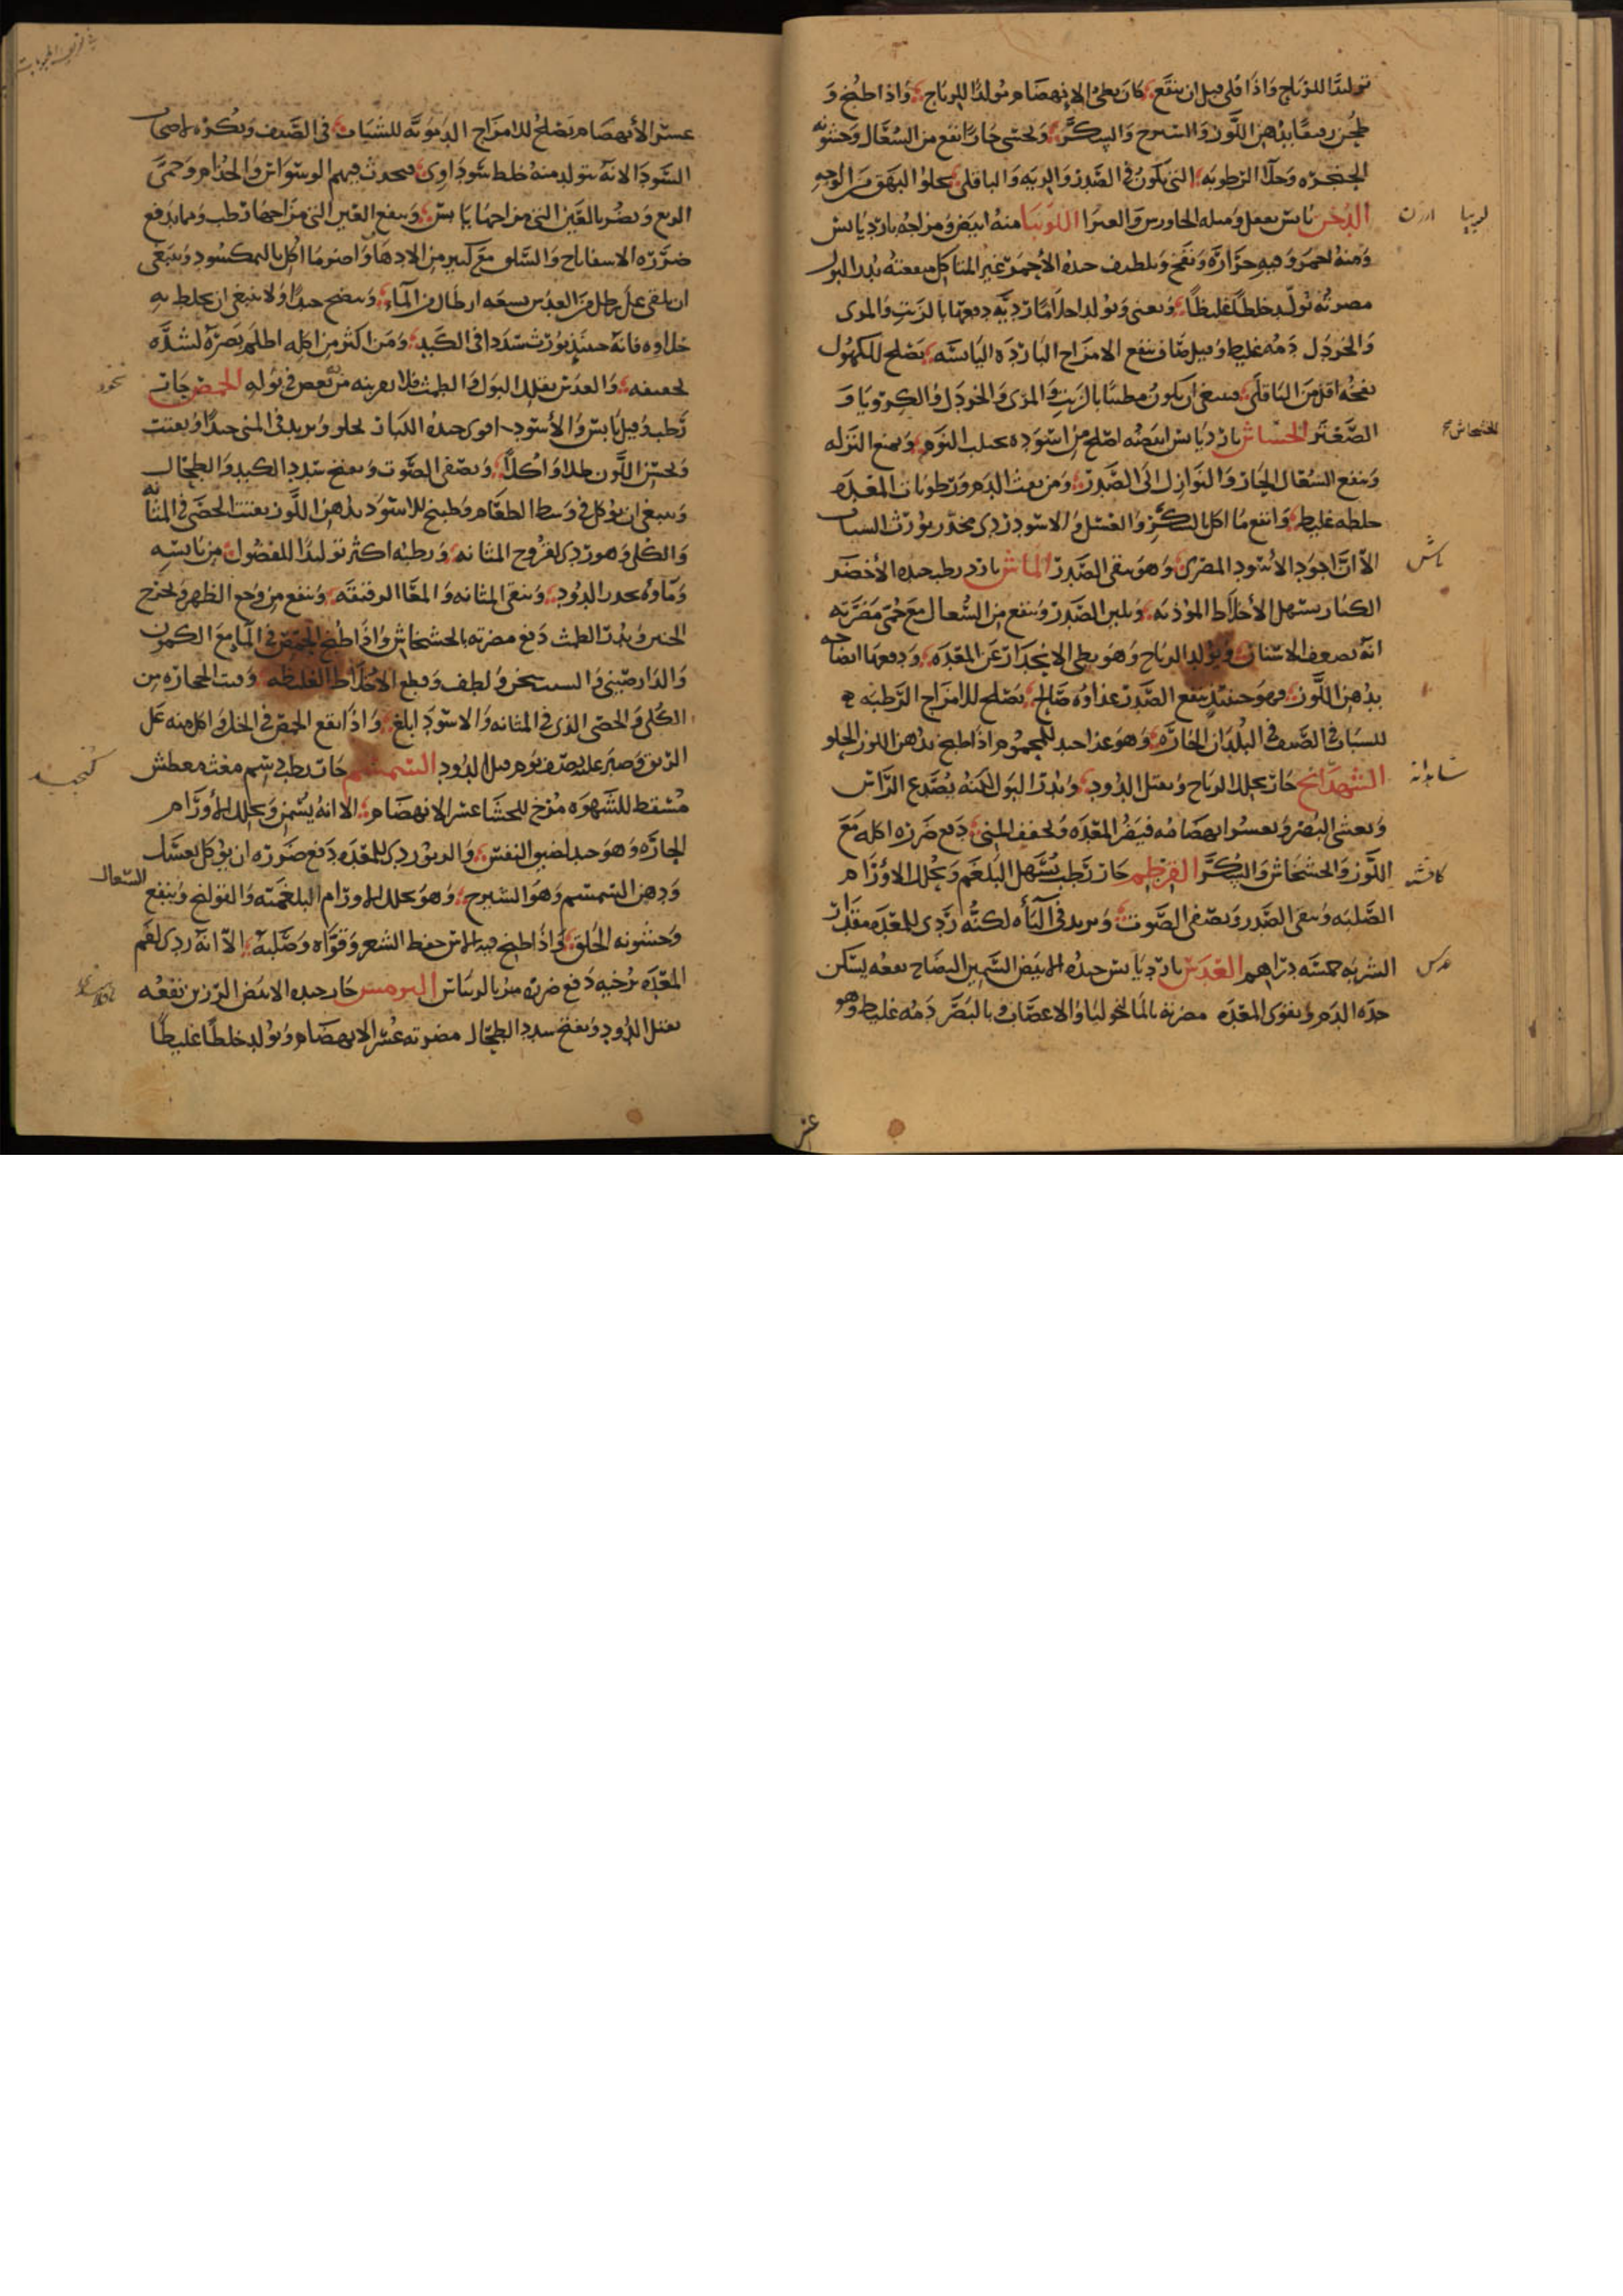 تولیدًا للریاح واذا قلی قبل ان ینقع كان بطئ الانهضام مولدًا للریاح واذا طبخ و
طحن ربیعًا بدهن اللوز والسیرج والسكر وتحسی حارًا نفع من السعال وخشونه
الحنجره وحلل الرطوبه التی تكون فی الصدر والریه والباقلی یجلوا البهق من الوجه
الدخن یابس یعقل ومثله الجاورس اللوبیا منه ابیض ومزاجه بارد یابس
ومنه احمر وفیه حراره ونفخ وتلطیف جیده الاحمر غیر المتاكل منفعته یدر البول
مضرته یولد خلطًا غلیظًا ویغثی ویولد احلامًا ردیه دفعها بالزیت والمری
والخردل دمه غلیظ وقیل صاف ینفع الامزاج البارده الیابسه یصلح للكهول
نفخه اقل من الباقلی وینبغی ان یكون مطیبًا بالزیت والمری والخردل والكرویا و
الصعتر الخشاش بارد یابس ابیضه اصلح من اسوده یجلب النوم ویمنع النزله
وینفع السعال الحار والنوازل الی الصدر ومن نفث الدم ورطوبات المعده
خلطه غلیظ وانفع ما اكل بالسكر والعسل والاسود ردی مخدر یورث السبات
الا ان اجود الاسود المصری وهو ینقی الصدر الماش بارد رطب جیده الاخضر
الكبار یسهل الاخلاط الموذیه ویلین الصدر وینفع من السعال مع حمی مضرته
انه یضعف الاسنان ویولد الریاح وهو بطی الانحدار عن المعده ودفعها انضاجه
بدهن اللوز وهو حینئذ ینفع الصدر غذاوه صالح یصلح للامزاج الرطبه
للشباب فی الصیف فی البلدان الحاره وهو غذا جید للمحموم اذا طبخ بدهن اللوز الحلو
الشهدانج حار یحلل الریاح ویقتل الدود ویدر البول لكنه یصدع الراس
ویغشی البصر ویعسر انهضامه فیضر المعده ویجفف المنی دفع ضرره اكله مع
اللوز والخشخاش والسكر القرطم حار رطب یسهل البلغم ویحلل الاورام
الصلبه وینقی الصدر ویصفی الصوت ویزید فی الباه لكنه ردی للمعده مقدار
الشربه خمسه دراهم العدس بارد یابس جیده الابیض السمین النضاج نفعه یسكن
حده الدم ویقوی المعده مضرته بالمالنخولیا والاعصاب وبالبصر دمه غلیظ وهو
لوبیا
ارزن
الخشخاش صح
ماش
شاهدانه
كافشه
عدس
عسر
عسر الانهضام یصلح للامزاج الدمویه للشباب فی الصیف ویكره لاصحاب
السودا لانه یتولد منه خلط سوداوی فیحدث فیهم الوسواس والجذام وحمی
الربع ویضر بالعین التی مزاجها یابس وینفع العین التی مزاجها رطب ومما یدفع
ضرره الاسفاناخ والسلق مع كثیر من الادهان واضر ما اكل بالنمكسود وینبغی
ان یلقی علی رطل من العدس سبعه ارطال من الماء وینضج جیدًا ولا ینبغی ان یخلط به
حلاوه فانه حینئذ یورث سددا فی الكبد ومن اكثر من اكله اظلم بصره لشده
تجفیفه والعدس یقلل البول والطمث فلا یقربنه من تعص فی بوله الحمص حار
رطب وقیل یابس والاسود اقوی جیده الكبار یجلو ویزید فی المنی جیدًا ویفتت
ویحسن اللون طلا واكلا ویصفی الصوت ویفتح سدد الكبد والطحال
وینبغی ان یوكل فی وسط الطعام وطبیخ الاسود بدهن اللوز یفتت الحصی فی المثانه
والكلی وهو ردی لقروح المثانه ورطبه اكثر تولیدًا للفضول من یابسه
وماوه یحدر الدود وینقی المثانه والمعا الرقیقه وینفع من وجع الظهر ویخرج
الجنین ویدر الطمث دفع مضرته بالخشخاش واذا طبخ الحمص فی الماء مع الكمون
والدارصینی والشبت سخن ولطف وقطع الاخلاط الغلیظه وفتت الحجاره من
الكلی والحصی الذی فی المثانه والاسود ابلغ واذا انقع الحمص فی الخل واكل منه علی
الریق وصبر علیه نصف یوم قتل الدود السمسم حار رطب دسم مغث معطش
مسقط للشهوه مرخ للحشا عسر الانهضام الا انه یسمن ویحلل الاورام
الحاره وهو جید لضیق النفس والربو ردی للمعده دفع ضرره ان یوكل بعسل
ودهن السمسم وهو الشیرج وهو یحلل الاورام البلغمیه والقولنج وینفع السعال
وخشونه الحلق واذا طبخ فیه الاس حفظ الشعر وقواه وصلبه الا انه ردی لفم
المعده یرخیه دفع ضرره الترمس حار جیده الابیض الرزین نفعه
یقتل الدود ویفتح سدد الطحال مضرته عسر الانهضام ویولد خلطًا غلیظًا
نخود
كنجید